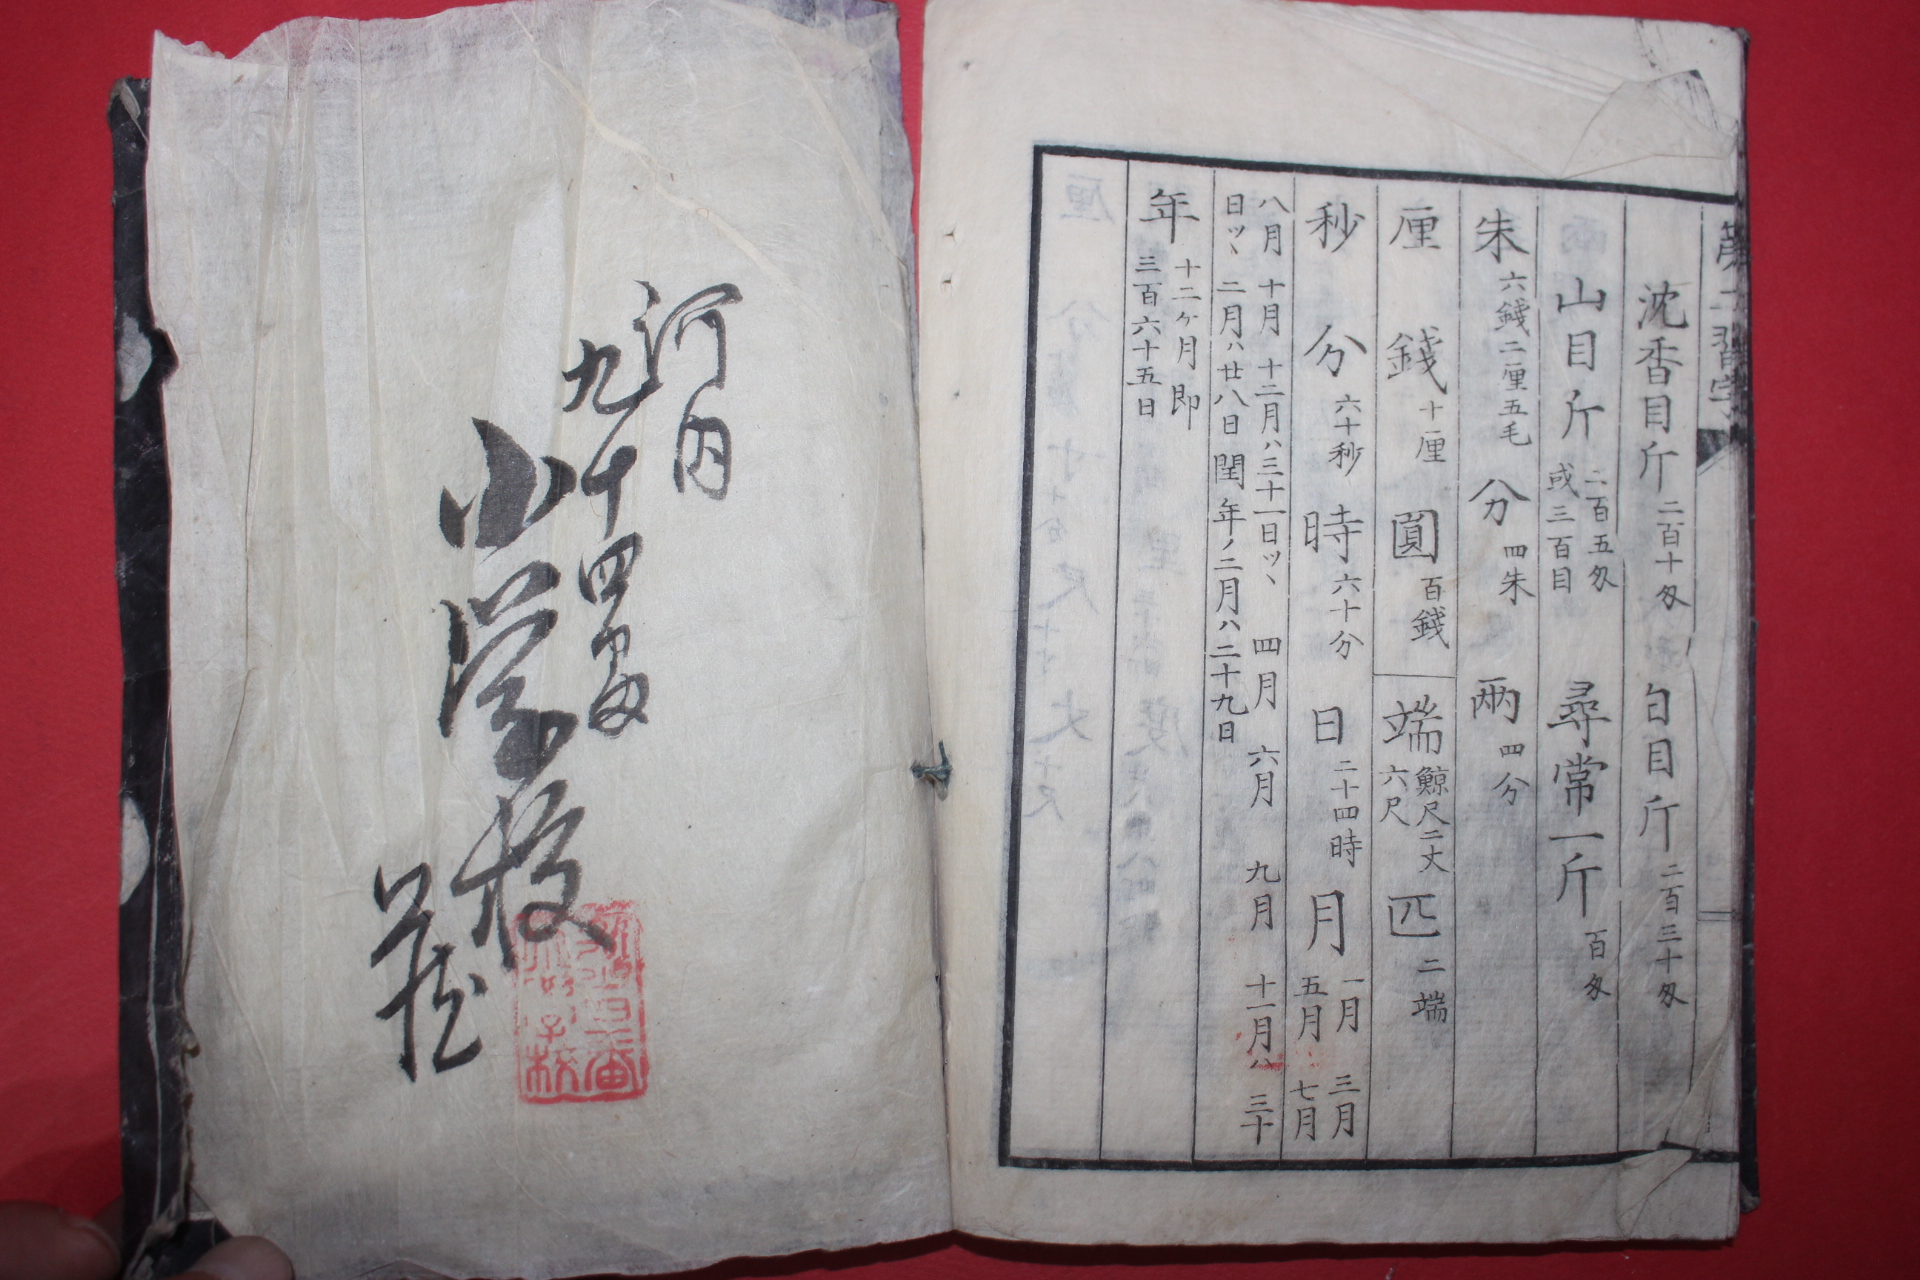 沈香目斤 二百十匁 白目斤 二百三十匁
山目斤 二百五匁 或三百目 尋常一斤 百匁
朱 六錢二厘五毛 分 四朱 兩 四分
厘 錢 十厘 圓 百錢
端 鯨尺二丈六尺 匹 二端
秒 分 六十秒 時 六十分 日 二十四時 月 一月 三月 五月 七月
八月 十月 十二月ハ三十一日ツヽ 四月 六月 九月 十一月ハ三十
日ツヽ 二月ハ廿八日 閏年ノ二月ハ二十九日
年 十二ケ月 即 三百六十五日
河内
九十四番
小学校
蔵